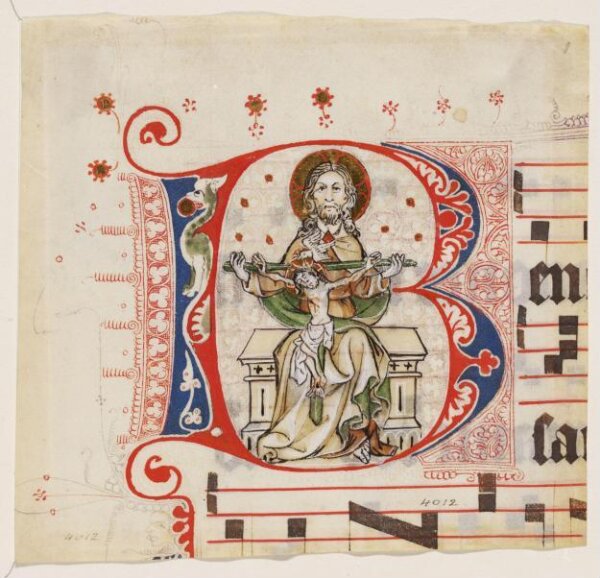 Ben
san
4012
4012